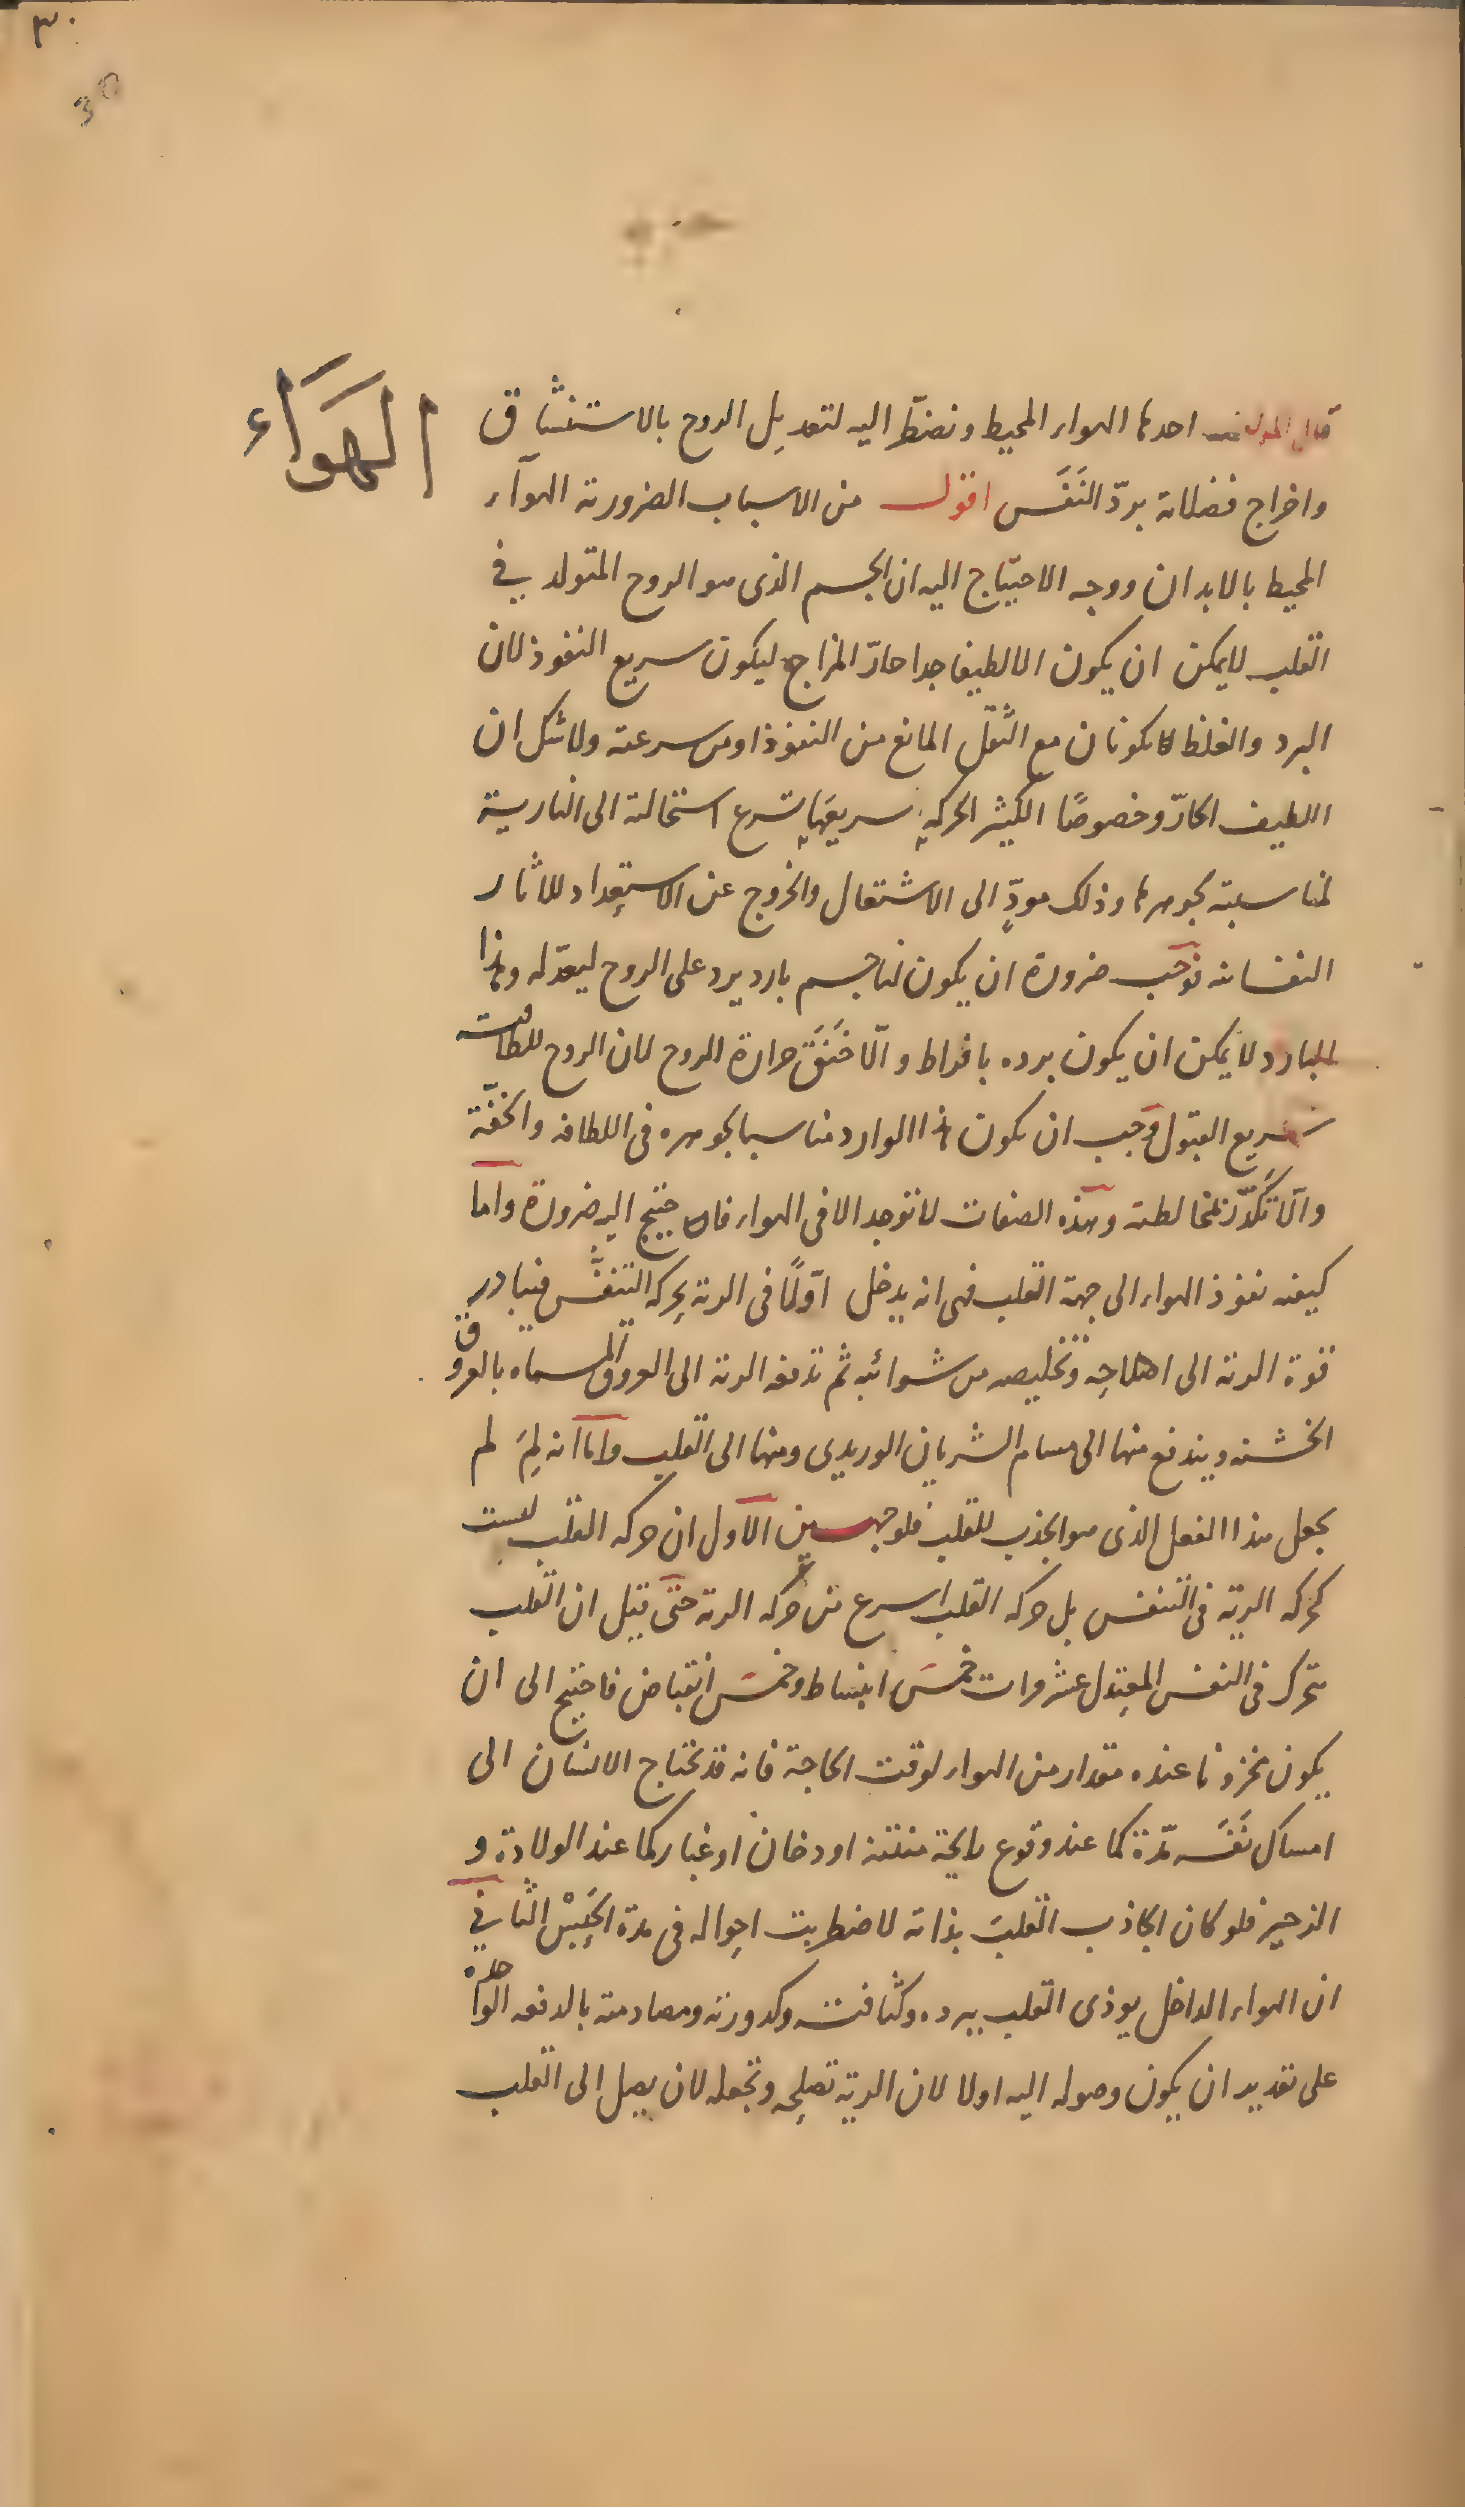 ٣٠
30
الهَوَاء
قال المولف احدها الهواء المحيط ونضطّر اليه لتعديل الروح بالاستنشاق
واخراج فضلاته بردّ النَفَس اقول من الاسباب الضرورية الهوآء
المحيط بالابدان ووجه الاحتياج اليه ان الجسم الذى هو الروح المتولد في
القلب لايمكن ان يكون الا لطيفا جدا حارّ المزاج ليكون سريع النفوذ لان
البرد والغلظ لا يكونان مع الثّقل المانع من النفوذ او من سرعته ولاشك ان
اللطيف الحارّ وخصوصًا الكثير الحركة سريعَها يتسرع استحالته الى النارية
لمناسبته لجوهرها وذلك مودٍّ الى الاشتعال والخروج عن الاستعداد للاثار
النفسانية فوجب ضرورة ان يكون لنا جسم بارد يرد على الروح ليعدّله وهذا
البارد لا يمكن ان يكون برده بافراط والّا خَنَقَ حرارة الروح لان الروح للطافته
سريع القبول وجب ان يكون هذا الوارد مناسبا لجوهره فى اللطافة والخفّة
والّا تكدّر بمخالطته وهذه الصفات لا توجد الا فى الهواء فاحتيج اليه ضرورة واما
كيفية نفوذ الهواء الى جهة القلب فهى انه يدخل اوّلًا فى الرية بحركة التنفّس فيبادر
قوة الرية الى اصلاحه وتخليصه من شوائبه ثم تدفعه الرية الى العروق المسماه بالعروق
الخشنة ويندفع منها الى مسام الشريان الوريدى ومنها الى القلب واما انه لِمَ لم
يجعل هذا الفعل الذى هو الجذب للقلب فلوجهين الاول ان حركة القلب ليست
كحركة الرية فى التنفس بل حركة القلب اسرع من حركة الرية حتى قيل ان القلب
يتحرك فى النفس المعتدل عشر مرات خمسَ انبساط وخمسَ انقباض فاحتيج الى ان
يكون مخزونا عنده مقدار من الهواء لوقت الحاجة فانه قد يحتاج الانسان الى
امساك نَفَسه مدّة كما عند وقوع رايحة منتنة او دخان او غبار كما عند الولادة و
الزحير فلو كان الجاذب القلبَ بذاته لاضطربت احواله فى مدة الحَبْسْ الثانى
ان الهواء الداخل يوذى القلب ببرده وكثافته وكدورته ومصادمته بالدفعة الواحدة
على تقدير ان يكون وصوله اليه اولا لان الرية تصلحه وتجعله لان يصل الى القلب